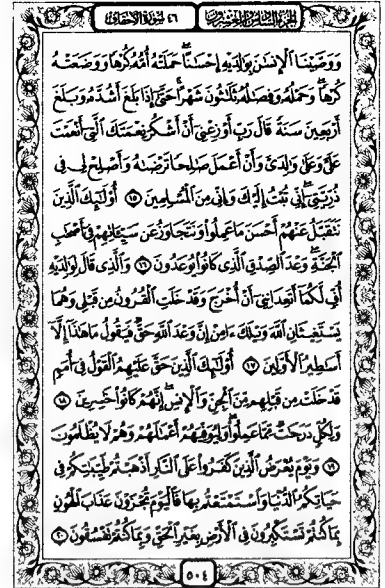 الجزء السادس والعشرون
٤٦ سورة الأحقاف
وَوَصَّيْنَا ٱلْإِنسَٰنَ بِوَٰلِدَيْهِ إِحْسَٰنًا حَمَلَتْهُ أُمُّهُۥ كُرْهًا وَوَضَعَتْهُ
كُرْهًا وَحَمْلُهُۥ وَفِصَٰلُهُۥ ثَلَٰثُونَ شَهْرًا حَتَّىٰٓ إِذَا بَلَغَ أَشُدَّهُۥ وَبَلَغَ
أَرْبَعِينَ سَنَةً قَالَ رَبِّ أَوْزِعْنِىٓ أَنْ أَشْكُرَ نِعْمَتَكَ ٱلَّتِىٓ أَنْعَمْتَ
عَلَىَّ وَعَلَىٰ وَٰلِدَىَّ وَأَنْ أَعْمَلَ صَٰلِحًا تَرْضَىٰهُ وَأَصْلِحْ لِى فِى
ذُرِّيَّتِىٓ إِنِّى تُبْتُ إِلَيْكَ وَإِنِّى مِنَ ٱلْمُسْلِمِينَ ١٥ أُو۟لَٰٓئِكَ ٱلَّذِينَ
نَتَقَبَّلُ عَنْهُمْ أَحْسَنَ مَا عَمِلُوا۟ وَنَتَجَاوَزُ عَن سَيِّـَٔاتِهِمْ فِىٓ أَصْحَٰبِ
ٱلْجَنَّةِ وَعْدَ ٱلصِّدْقِ ٱلَّذِى كَانُوا۟ يُوعَدُونَ ١٦ وَٱلَّذِى قَالَ لِوَٰلِدَيْهِ
أُفٍّ لَّكُمَآ أَتَعِدَانِنِىٓ أَنْ أُخْرَجَ وَقَدْ خَلَتِ ٱلْقُرُونُ مِن قَبْلِى وَهُمَا
يَسْتَغِيثَانِ ٱللَّهَ وَيْلَكَ ءَامِنْ إِنَّ وَعْدَ ٱللَّهِ حَقٌّ فَيَقُولُ مَا هَٰذَآ إِلَّآ
أَسَٰطِيرُ ٱلْأَوَّلِينَ ١٧ أُو۟لَٰٓئِكَ ٱلَّذِينَ حَقَّ عَلَيْهِمُ ٱلْقَوْلُ فِىٓ أُمَمٍ
قَدْ خَلَتْ مِن قَبْلِهِم مِّنَ ٱلْجِنِّ وَٱلْإِنسِ إِنَّهُمْ كَانُوا۟ خَٰسِرِينَ ١٨
وَلِكُلٍّ دَرَجَٰتٌ مِّمَّا عَمِلُوا۟ وَلِيُوَفِّيَهُمْ أَعْمَٰلَهُمْ وَهُمْ لَا يُظْلَمُونَ
١٩ وَيَوْمَ يُعْرَضُ ٱلَّذِينَ كَفَرُوا۟ عَلَى ٱلنَّارِ أَذْهَبْتُمْ طَيِّبَٰتِكُمْ فِى
حَيَاتِكُمُ ٱلدُّنْيَا وَٱسْتَمْتَعْتُم بِهَا فَٱلْيَوْمَ تُجْزَوْنَ عَذَابَ ٱلْهُونِ
بِمَا كُنتُمْ تَسْتَكْبِرُونَ فِى ٱلْأَرْضِ بِغَيْرِ ٱلْحَقِّ وَبِمَا كُنتُمْ تَفْسُقُونَ ٢٠
٥٠٤